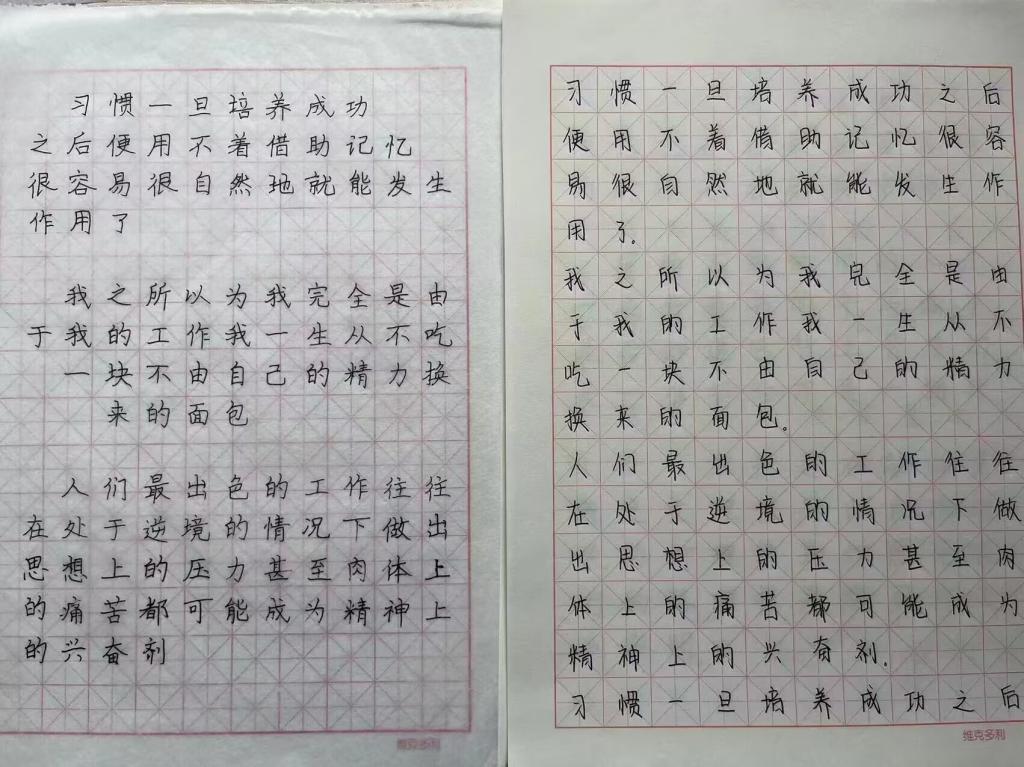 习惯一旦培养成功
之后便用不着借助记忆
很容易很自然地就能发生
作用了
我之所以为我完全是由
于我的工作我一生从不吃
一块不由自己的精力换
来的面包
人们最出色的工作往往
在处于逆境的情况下做出
思想上的压力甚至肉体上
的痛苦都可能成为精神上
的兴奋剂
维克多利
习惯一旦培养成功之后
便用不着借助记忆很容
易很自然地就能发生作
用了。
我之所以为我完全是由
于我的工作我一生从不
吃一块不由自己的精力
换来的面包。
人们最出色的工作往往
在处于逆境的情况下做
出思想上的压力甚至肉
体上的痛苦都可能成为
精神上的兴奋剂.
习惯一旦培养成功之后
维克多利